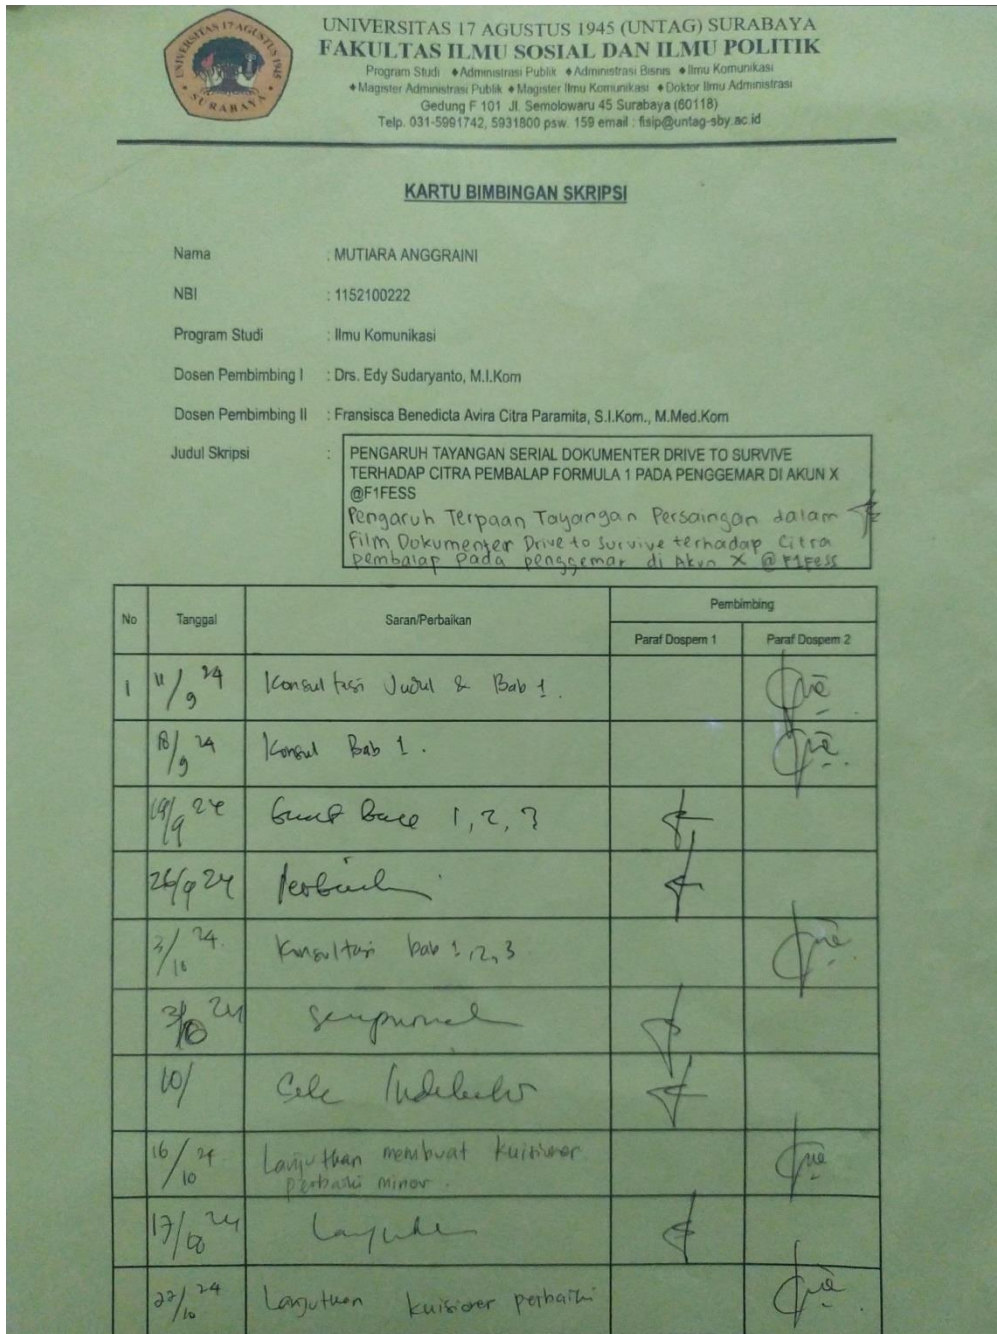 UNIVERSITAS 17 AGUSTUS 1945
SURABAYA
UNIVERSITAS 17 AGUSTUS 1945 (UNTAG) SURABAYA
FAKULTAS ILMU SOSIAL DAN ILMU POLITIK
Program Studi ♦Administrasi Publik ♦Administrasi Bisnis ♦Ilmu Komunikasi
♦Magister Administrasi Publik ♦Magister Ilmu Komunikasi ♦Doktor Ilmu Administrasi
Gedung F 101 Jl. Semolowaru 45 Surabaya (60118)
Telp. 031-5991742, 5931800 psw. 159 email : fisip@untag-sby.ac.id
KARTU BIMBINGAN SKRIPSI
Nama : MUTIARA ANGGRAINI
NBI : 1152100222
Program Studi : Ilmu Komunikasi
Dosen Pembimbing I : Drs. Edy Sudaryanto, M.I.Kom
Dosen Pembimbing II : Fransisca Benedicta Avira Citra Paramita, S.I.Kom., M.Med.Kom
Judul Skripsi : PENGARUH TAYANGAN SERIAL DOKUMENTER DRIVE TO SURVIVE
TERHADAP CITRA PEMBALAP FORMULA 1 PADA PENGGEMAR DI AKUN X
@F1FESS
Pengaruh Terpaan Tayangan Persaingan dalam
Film Dokumenter Drive to Survive terhadap Citra
pembalap pada penggemar di Akun X @F1Fess
No Tanggal Saran/Perbaikan Pembimbing
Paraf Dospem 1 Paraf Dospem 2
1 11/9 24 Konsultasi Judul & Bab 1.
18/9 24 Konsul Bab 1.
19/9 24 1, 2, 3
26/9 24
3/10 24. Konsultasi bab 1,2,3
3/10 24
10/ Cek
16/10 24 Lanjutkan membuat kuisioner
perbaiki minor.
17/10 24
22/10 24 Lanjutkan kuisioner perbaiki